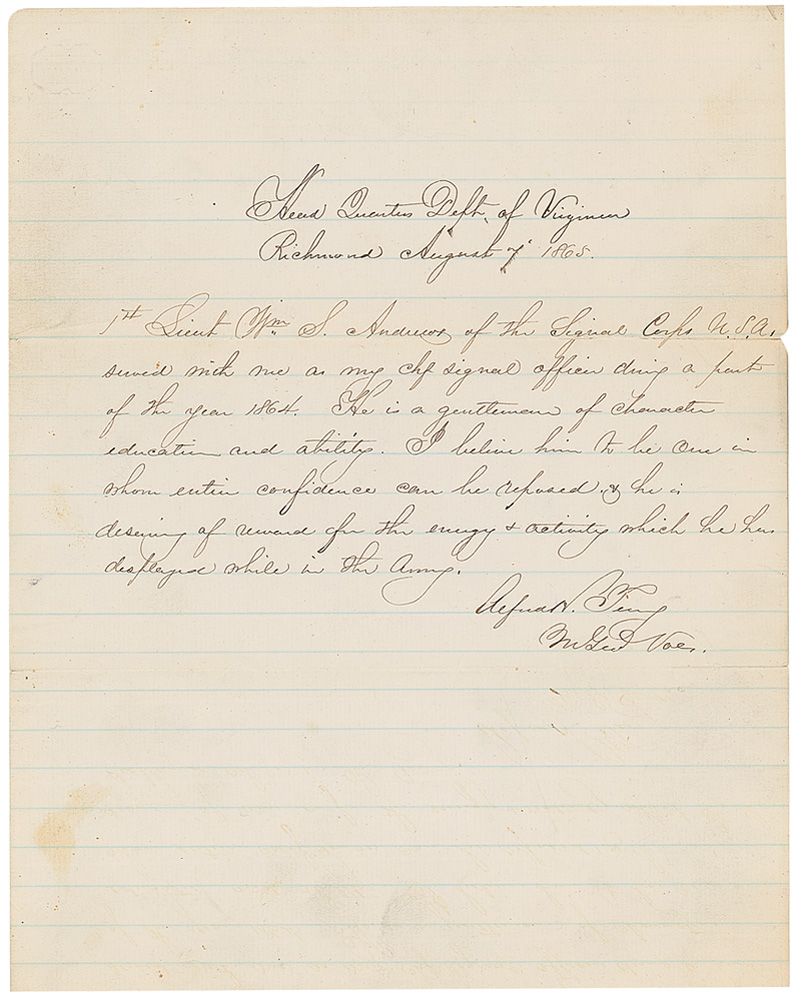 Head Quarters Dept. of Virginia
Richmond August 7" 1865.
1st Lieut Wm S. Andrews of the Signal Corps U.S.A.
served with me as my Chf signal officer during a part
of the year 1864. He is a gentleman of character
education and ability. I believe him to be one in
whom entire confidence can be reposed. & he is
deserving of reward for the energy & activity which he has
displayed while in the Army.
Alfred H. Terry
M Genl Vols.